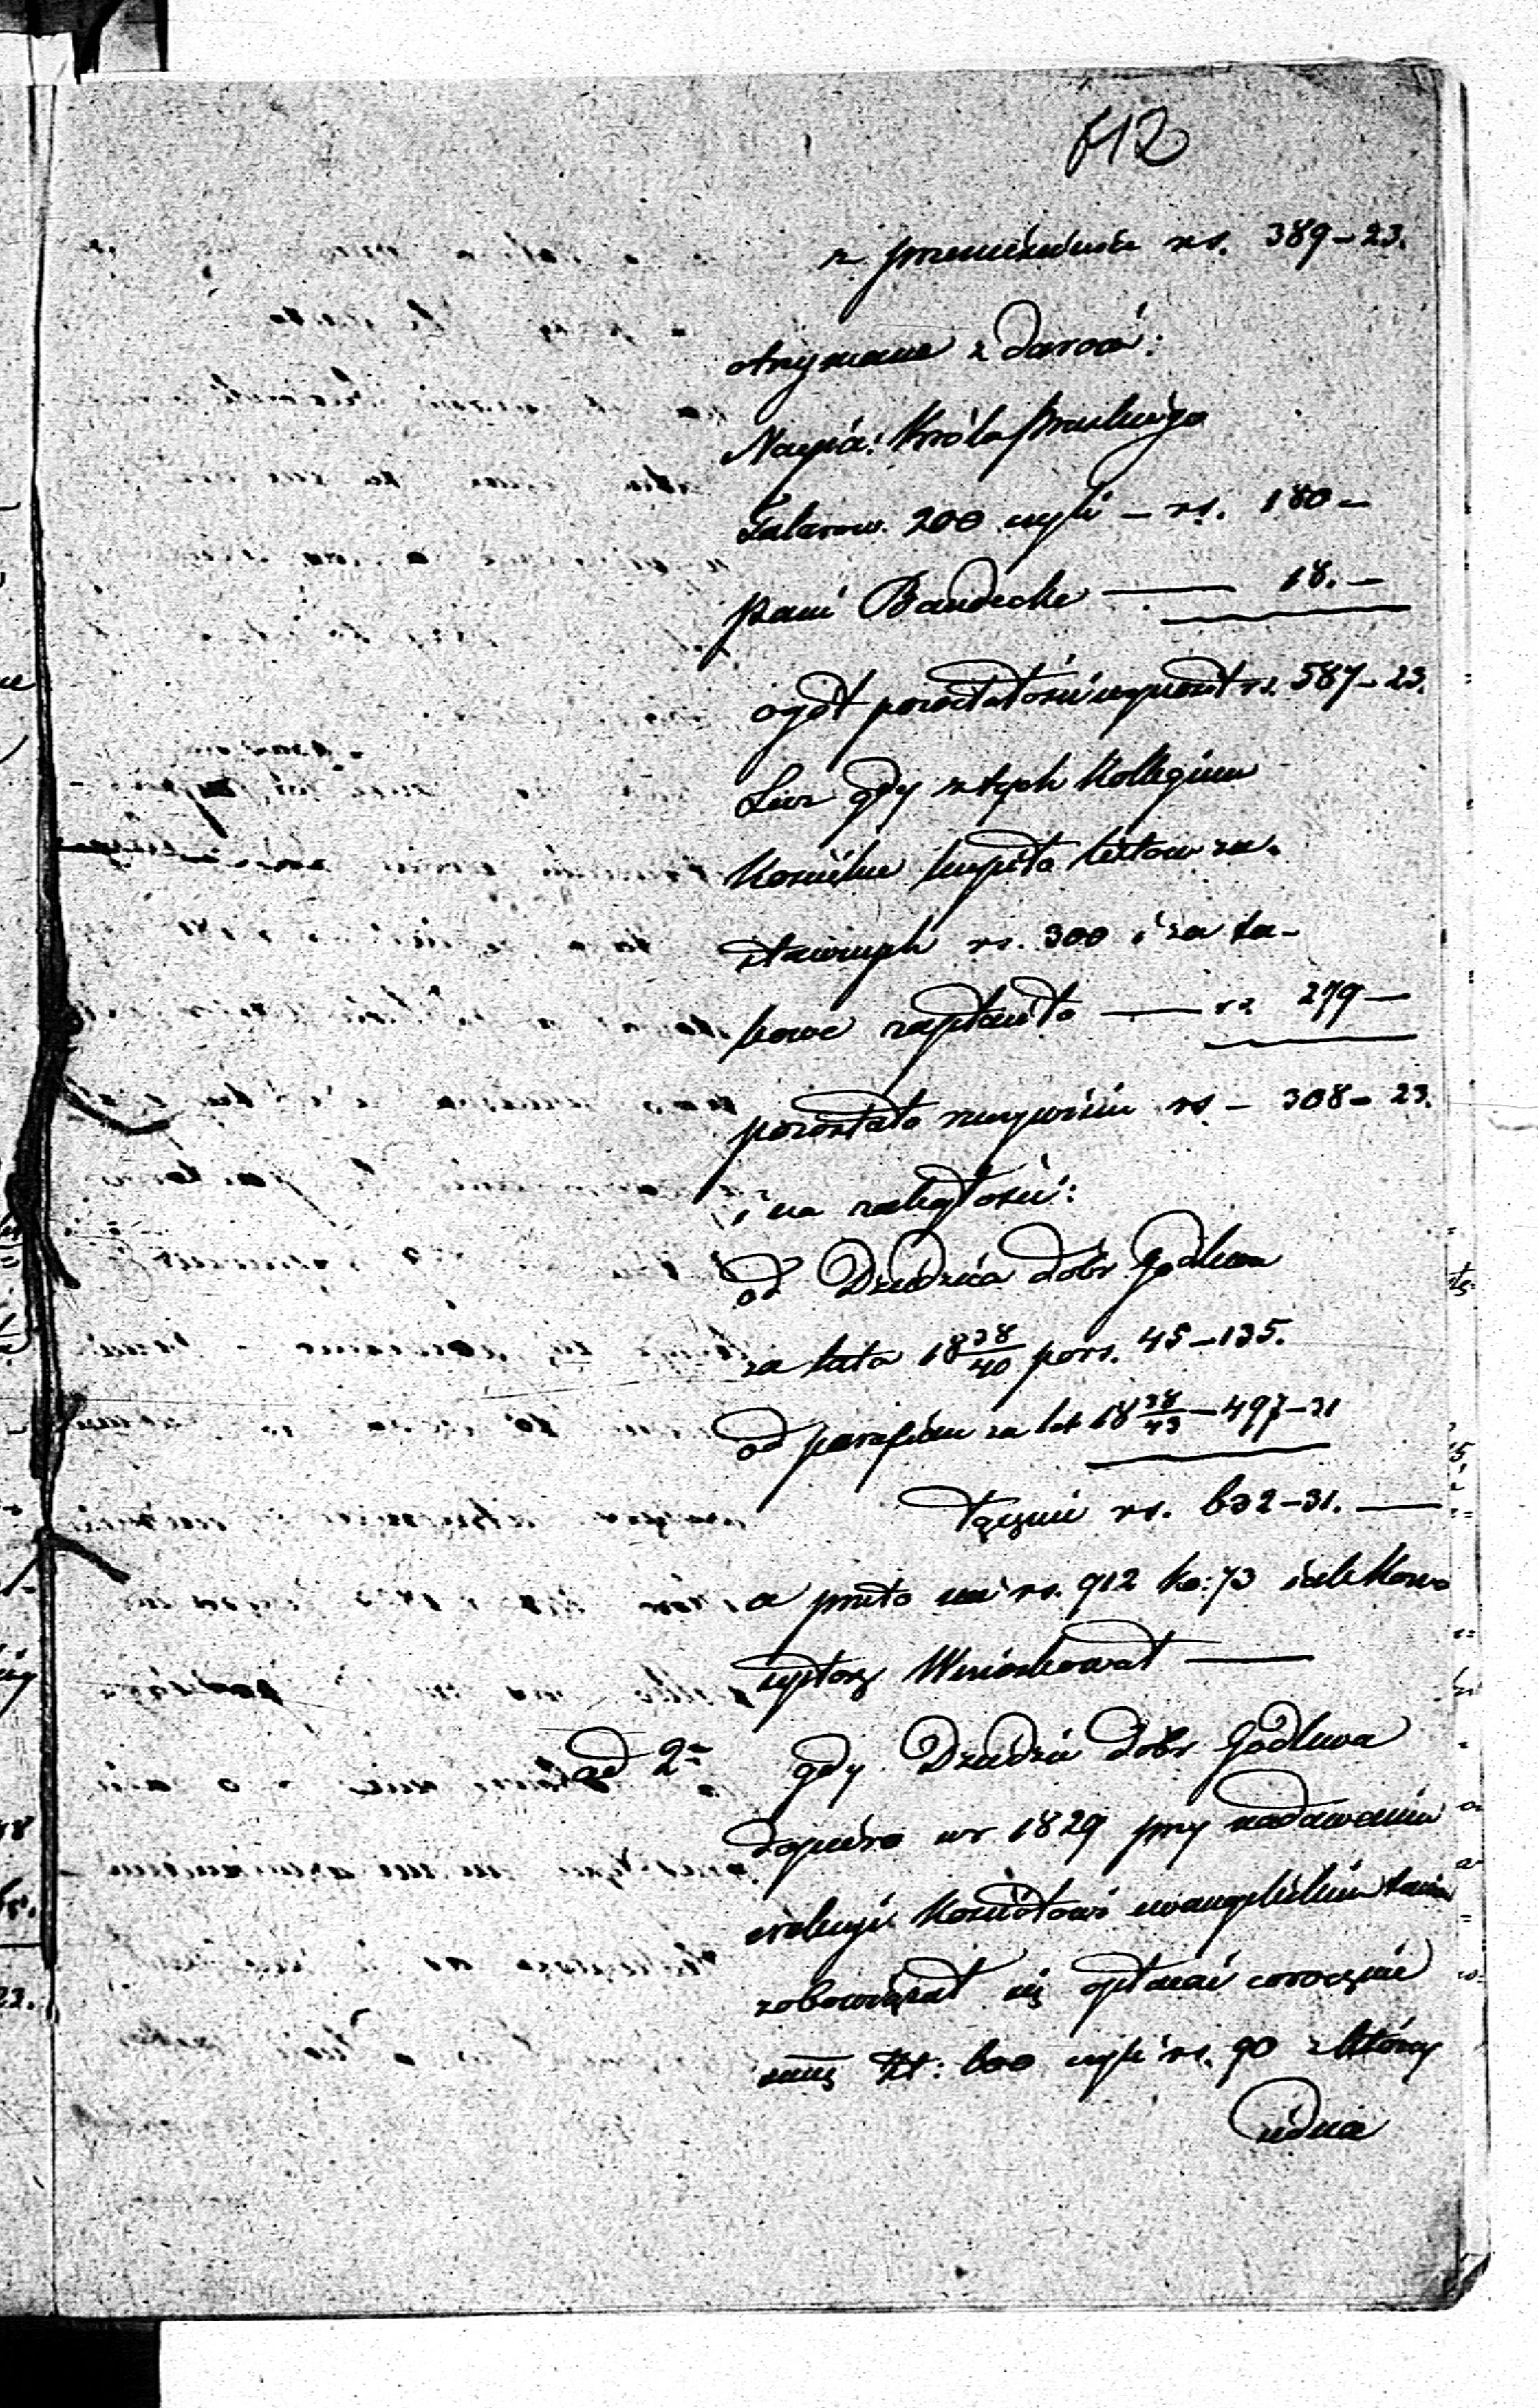 612
z przeniesienia rs. 389–23.
otrzymane z darów:
Najja: Króla Pruskiego
Talarow. 200 czyli – rs. 180 –
pani Bandtke —— 18. –
ogół pozostałości wynosił rs. 587–23.
Lecz gdy z tych Kollegium
Kościelne kupiło listow za-
stawnych rs. 300 i za ta-
kowe zapłaciło —— rs 279 —
pozostało rzeczywiście rs – 308–23.
i na zaległości:
od Dziedzica dobr Godlewa
za lata 18 38/40 po rs. 45–135.
od parafian za lat 18 38/43 – 497–31
łącznie rs. 632–31. —
a przeto nie rs. 912 ko: 73 jak Kon-
syptorz Wnioskował ——
ad 2. gdy Dziedzic dobr Godlewa
dopiéro w r 1829 przy nadawaniu
erekcyi Kościołowi ewangelickiemu
zobowiązał się opłacać corocznie
summę Zł: 600 czyli rs. 90 z której
jedna